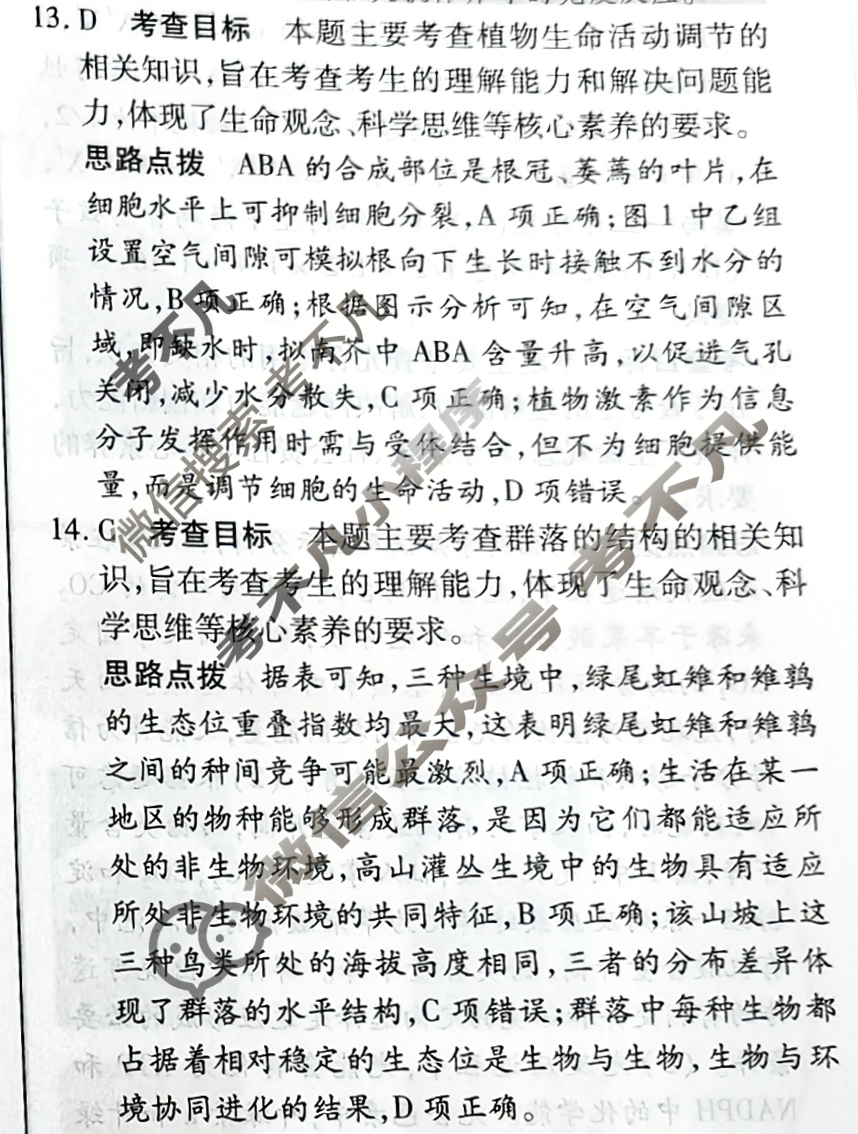 13. D 考查目标 本题主要考查植物生命活动调节的
相关知识,旨在考查考生的理解能力和解决问题能
力,体现了生命观念、科学思维等核心素养的要求。
思路点拨 ABA 的合成部位是根冠、萎蔫的叶片,在
细胞水平上可抑制细胞分裂,A 项正确;图 1 中乙组
设置空气间隙可模拟根向下生长时接触不到水分的
情况,B 项正确;根据图示分析可知,在空气间隙区
域,即缺水时,拟南芥中 ABA 含量升高,以促进气孔
关闭,减少水分散失,C 项正确;植物激素作为信息
分子发挥作用时需与受体结合,但不为细胞提供能
量,而是调节细胞的生命活动,D 项错误。
14. C 考查目标 本题主要考查群落的结构的相关知
识,旨在考查考生的理解能力,体现了生命观念、科
学思维等核心素养的要求。
思路点拨 据表可知,三种生境中,绿尾虹雉和雉鹑
的生态位重叠指数均最大,这表明绿尾虹雉和雉鹑
之间的种间竞争可能最激烈,A 项正确;生活在某一
地区的物种能够形成群落,是因为它们都能适应所
处的非生物环境,高山灌丛生境中的生物具有适应
所处非生物环境的共同特征,B 项正确;该山坡上这
三种鸟类所处的海拔高度相同,三者的分布差异体
现了群落的水平结构,C项错误;群落中每种生物都
占据着相对稳定的生态位是生物与生物,生物与环
境协同进化的结果,D 项正确。
考不凡
微信搜索 考不凡
考不凡小程序
微信公众号 考不凡